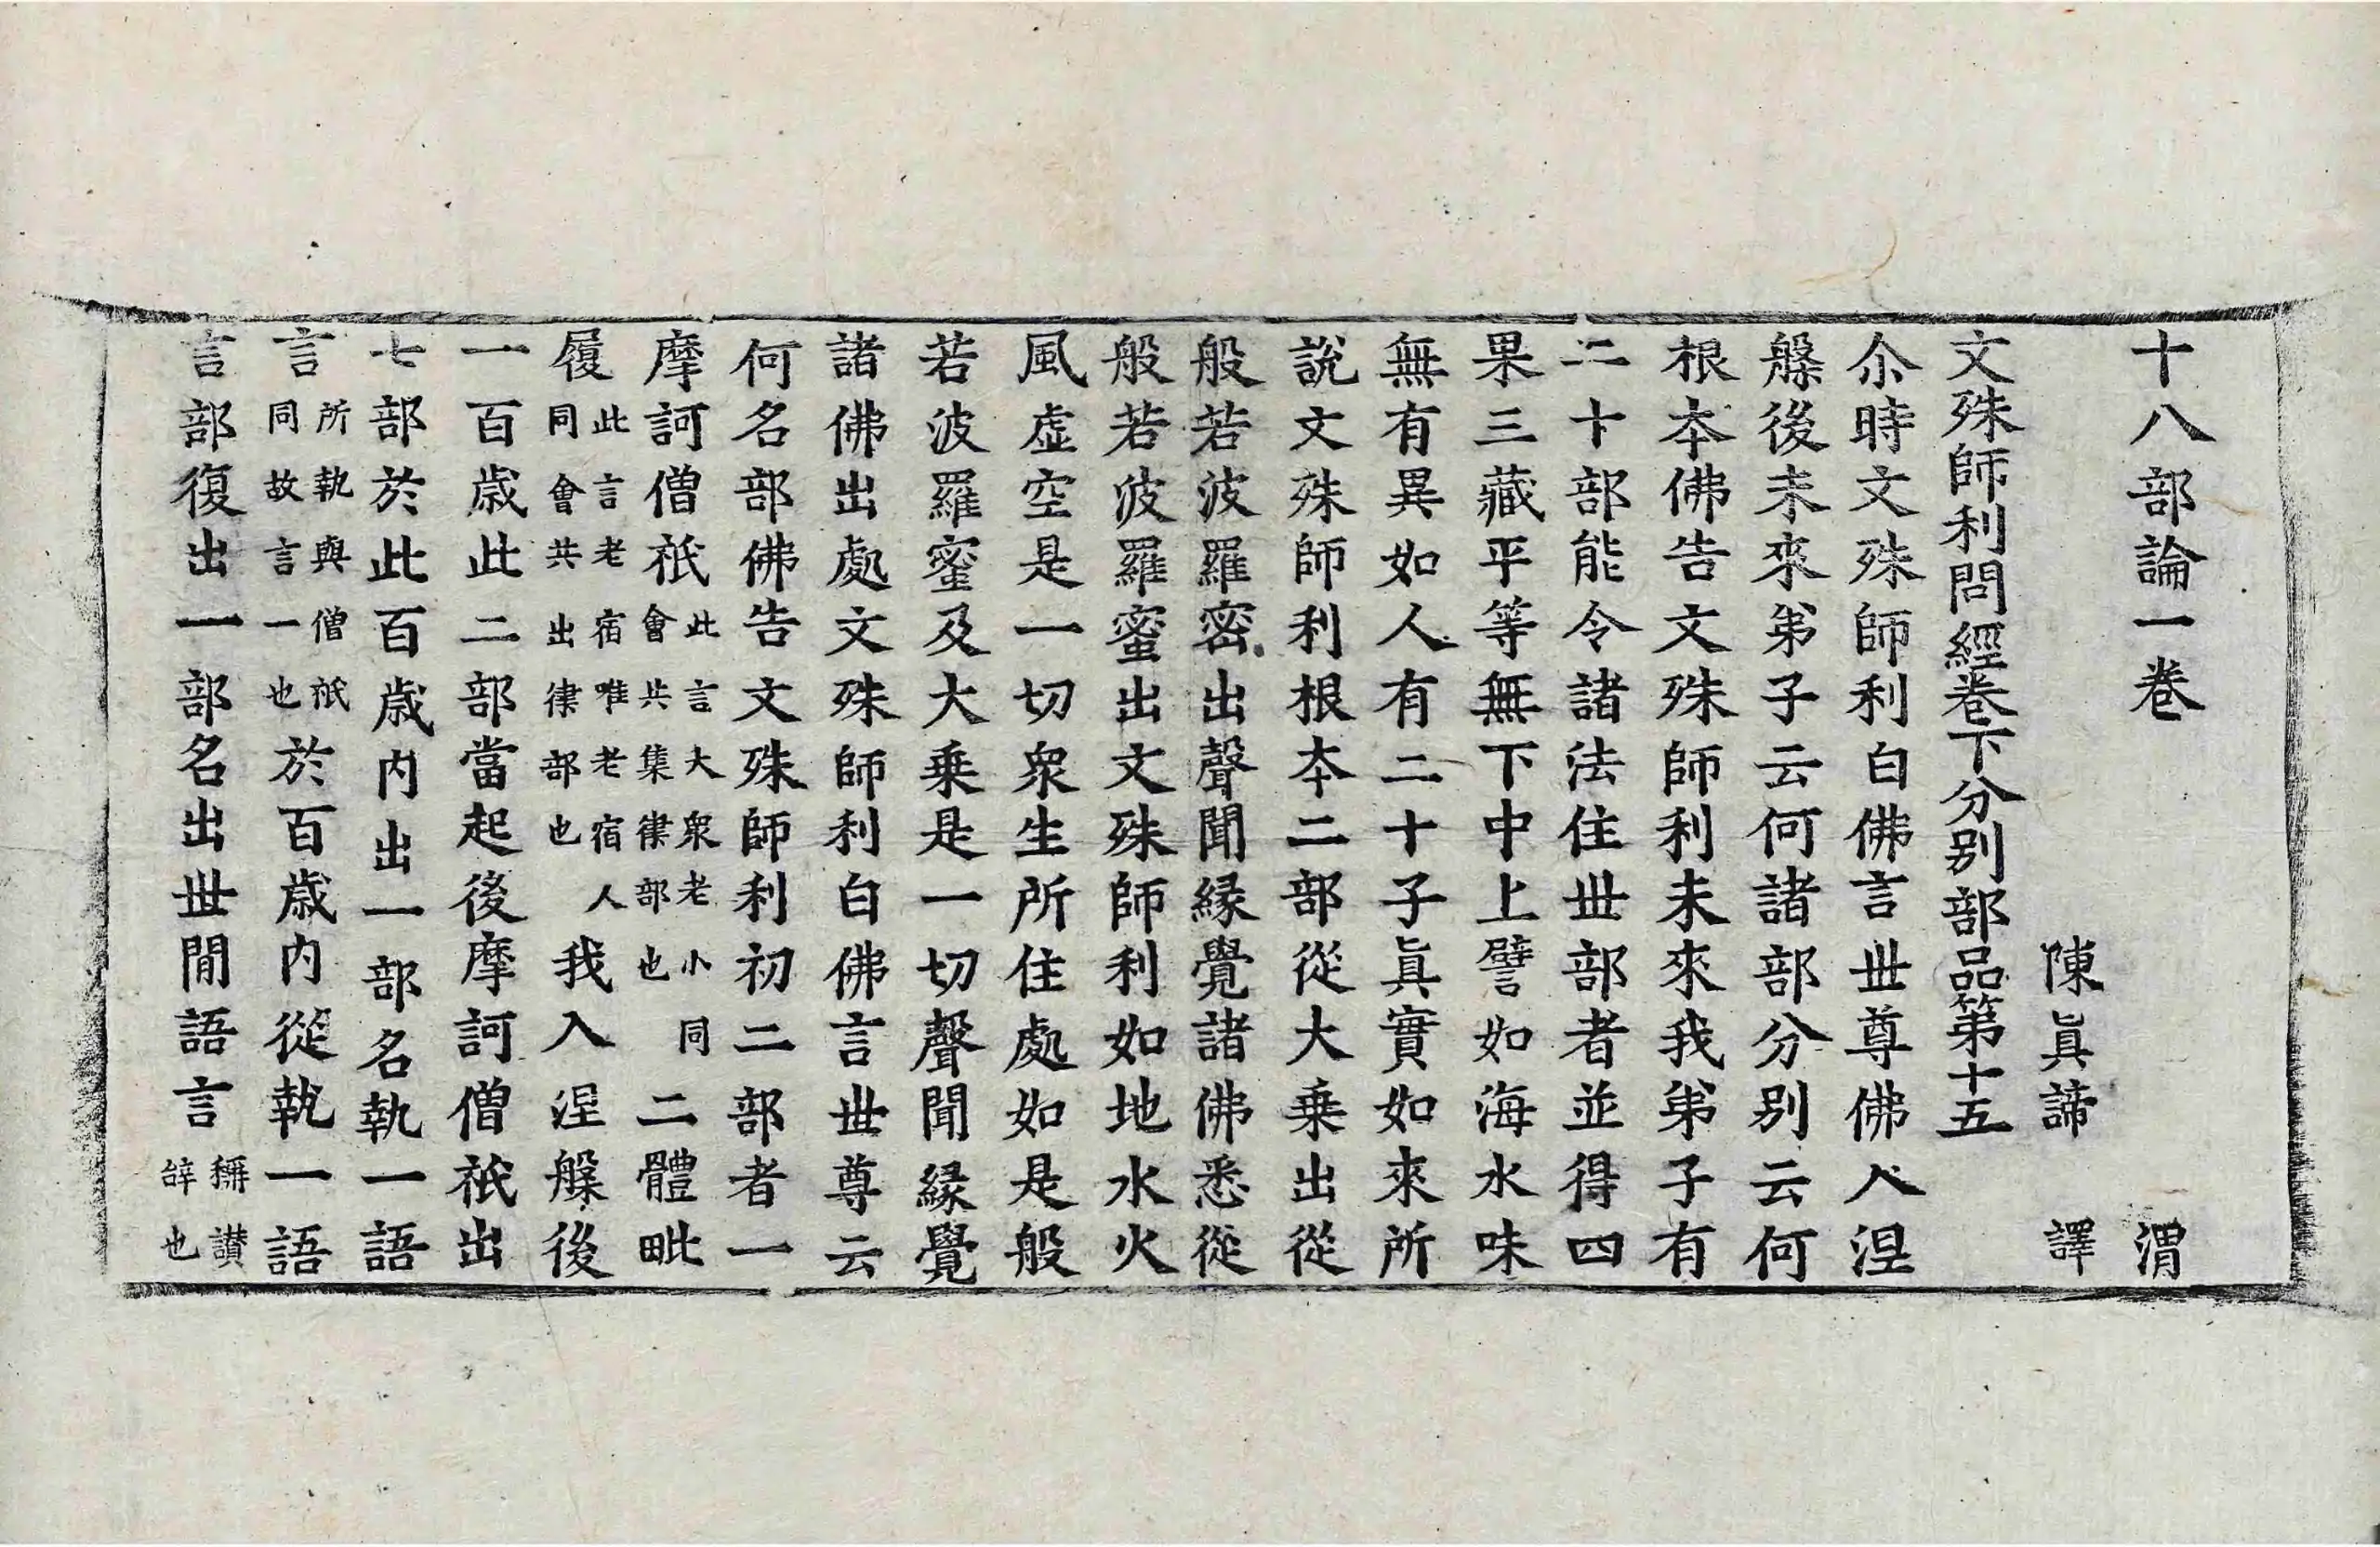 十八部論一卷 渭
陳真諦 譯
文殊師利問經卷下分別部品第十五
尒時文殊師利白佛言世尊佛入涅
槃後未來弟子云何諸部分別云何
根本佛告文殊師利未來我弟子有
二十部能令諸法住世部者並得四
果三藏平等無下中上譬如海水味
無有異如人有二十子眞實如來所
說文殊師利根本二部從大乗出從
般若波羅密出聲聞緣覺諸佛悉從
般若波羅蜜出文殊師利如地水火
風虛空是一切衆生所住處如是般
若波羅蜜及大乗是一切聲聞緣覺
諸佛出處文殊師利白佛言世尊云
何名部佛告文殊師利初二部者一
摩訶僧祇此言大衆老小同會共集律部也二體毗
履此言老宿唯老宿人同會共出律部也我入涅槃後
一百歲此二部當起後摩訶僧祇出
七部於此百歲内出一部名執一語
言所執與僧祇同故言一也於百歲内從執一語
言部復出一部名出世間語言稱讃辝也